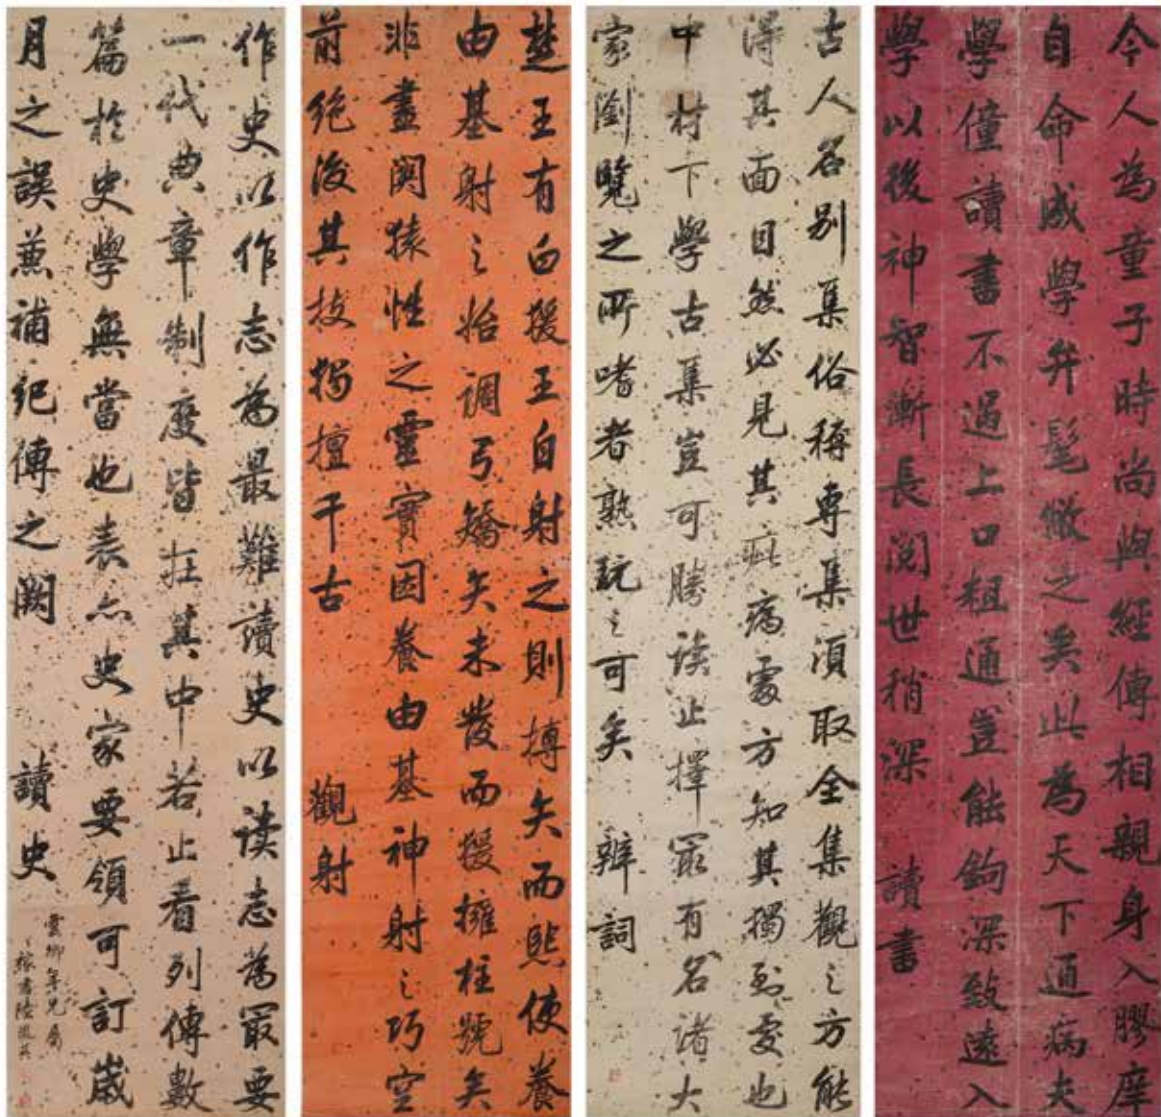 今人為童子時尚與經傳相親身入膠庠
自命成學弁髦儌之矣此為天下通病夫
學僮讀書不過上口粗通豈能鉤深致遠入
學以後神智漸長閱世稍深 讀書
古人名別集俗稱專集須取全集觀之方能
得其面目然必見其疵病處方知其獨到處也
中材下學古集豈可勝读止擇最有名諸大
家瀏覽之所嗜者熟玩之可矣 辨詞
楚王有白猨王自射之則搏矢而熙使養
由基射之始調弓矯矢未發而猨擁柱號矣
非盡関猿性之靈實因養由基神射之巧空
前绝後其技獨擅千古 觀射
作史以作志為最難讀史以读志為最要
一代典章制度皆在其中若止看列傳數
篇於史學無當也表亦史家要領可訂歲
月之誤兼補紀傳之闕 讀史
雲卿年兄屬
稼書